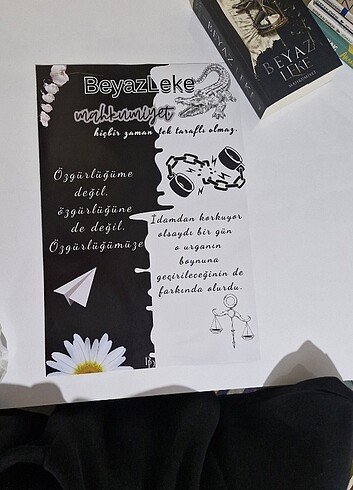 BEYAZ
LEKE
MAHKUMİYET
BeyazLeke
mahkumiyet
hiçbir zaman tek taraflı olmaz.
Özgürlüğüme
değil.
özgürlüğüne
de değil.
Özgürlüğümüze
İdamdan korkuyor
olsaydı bir gün
o urganın
boynuna
geçirileceğinin de
farkında olurdu.